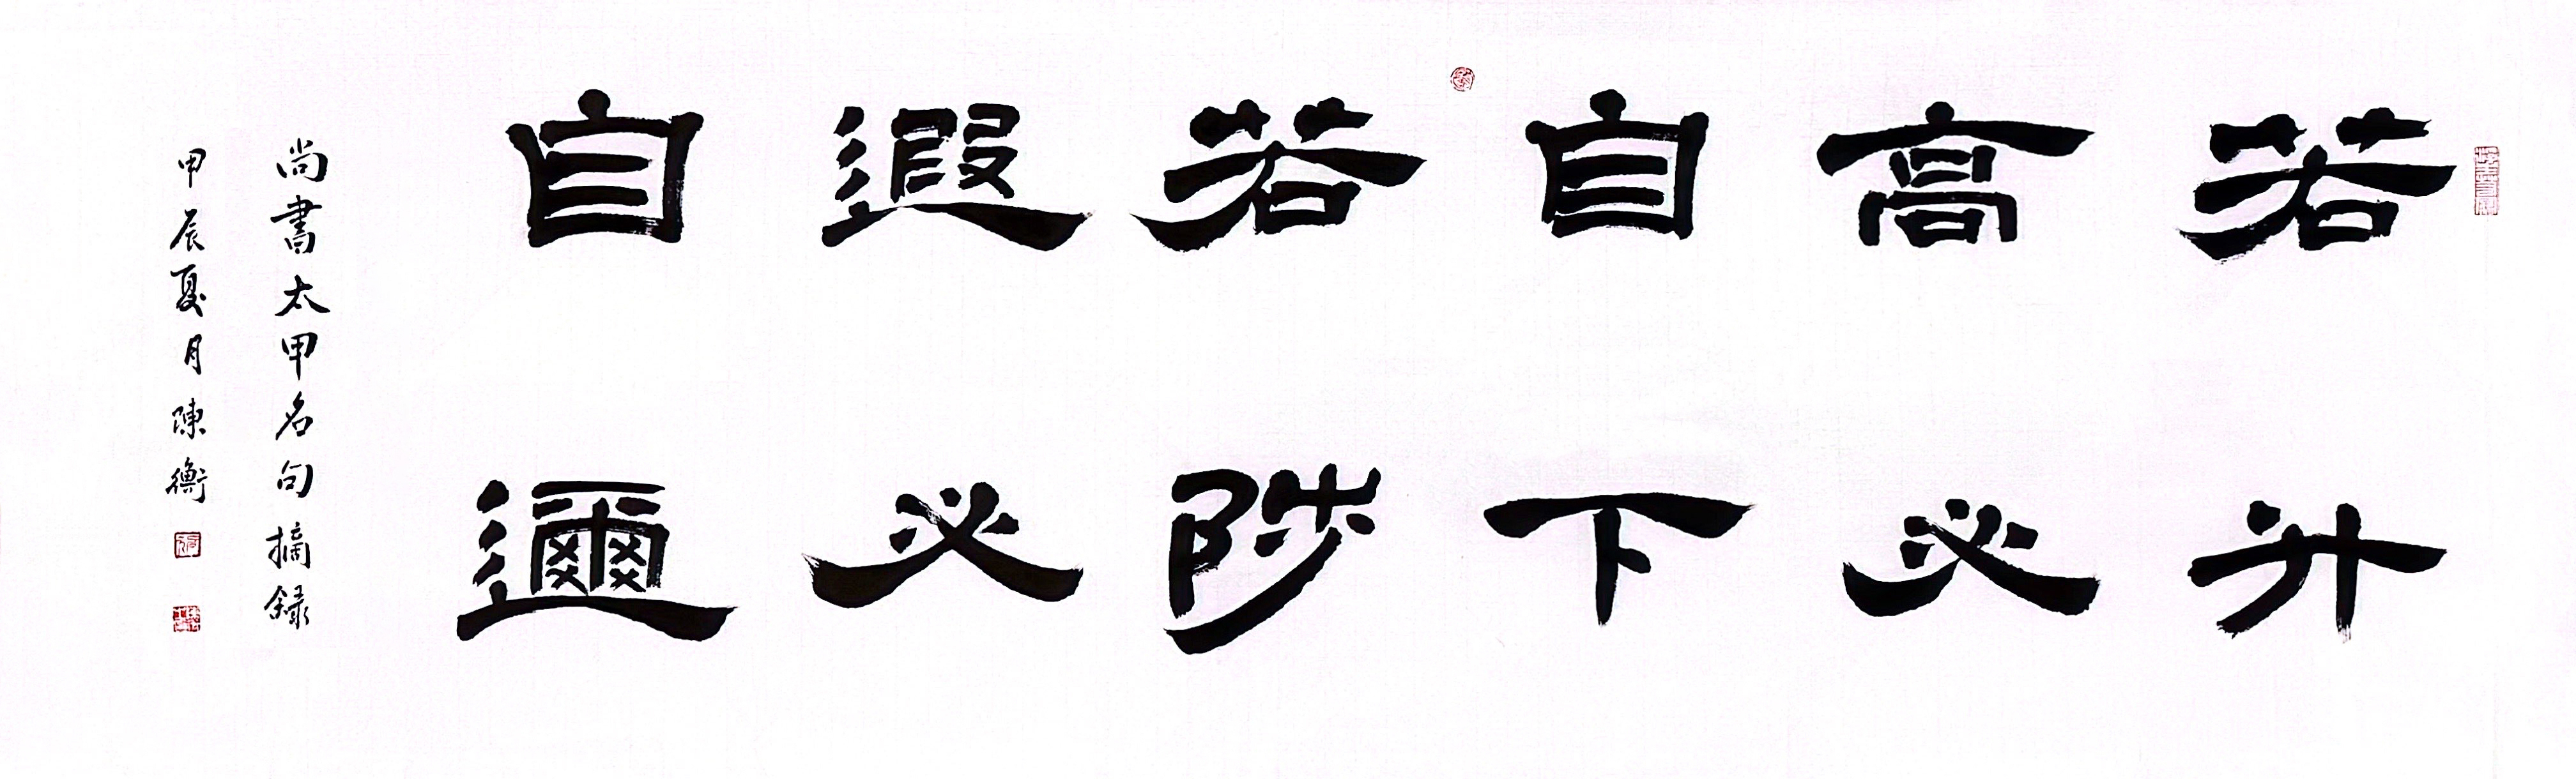 若升
高必
自下
若陟
遐必
自邇
尚書太甲名句摘録
甲辰夏月陳衡